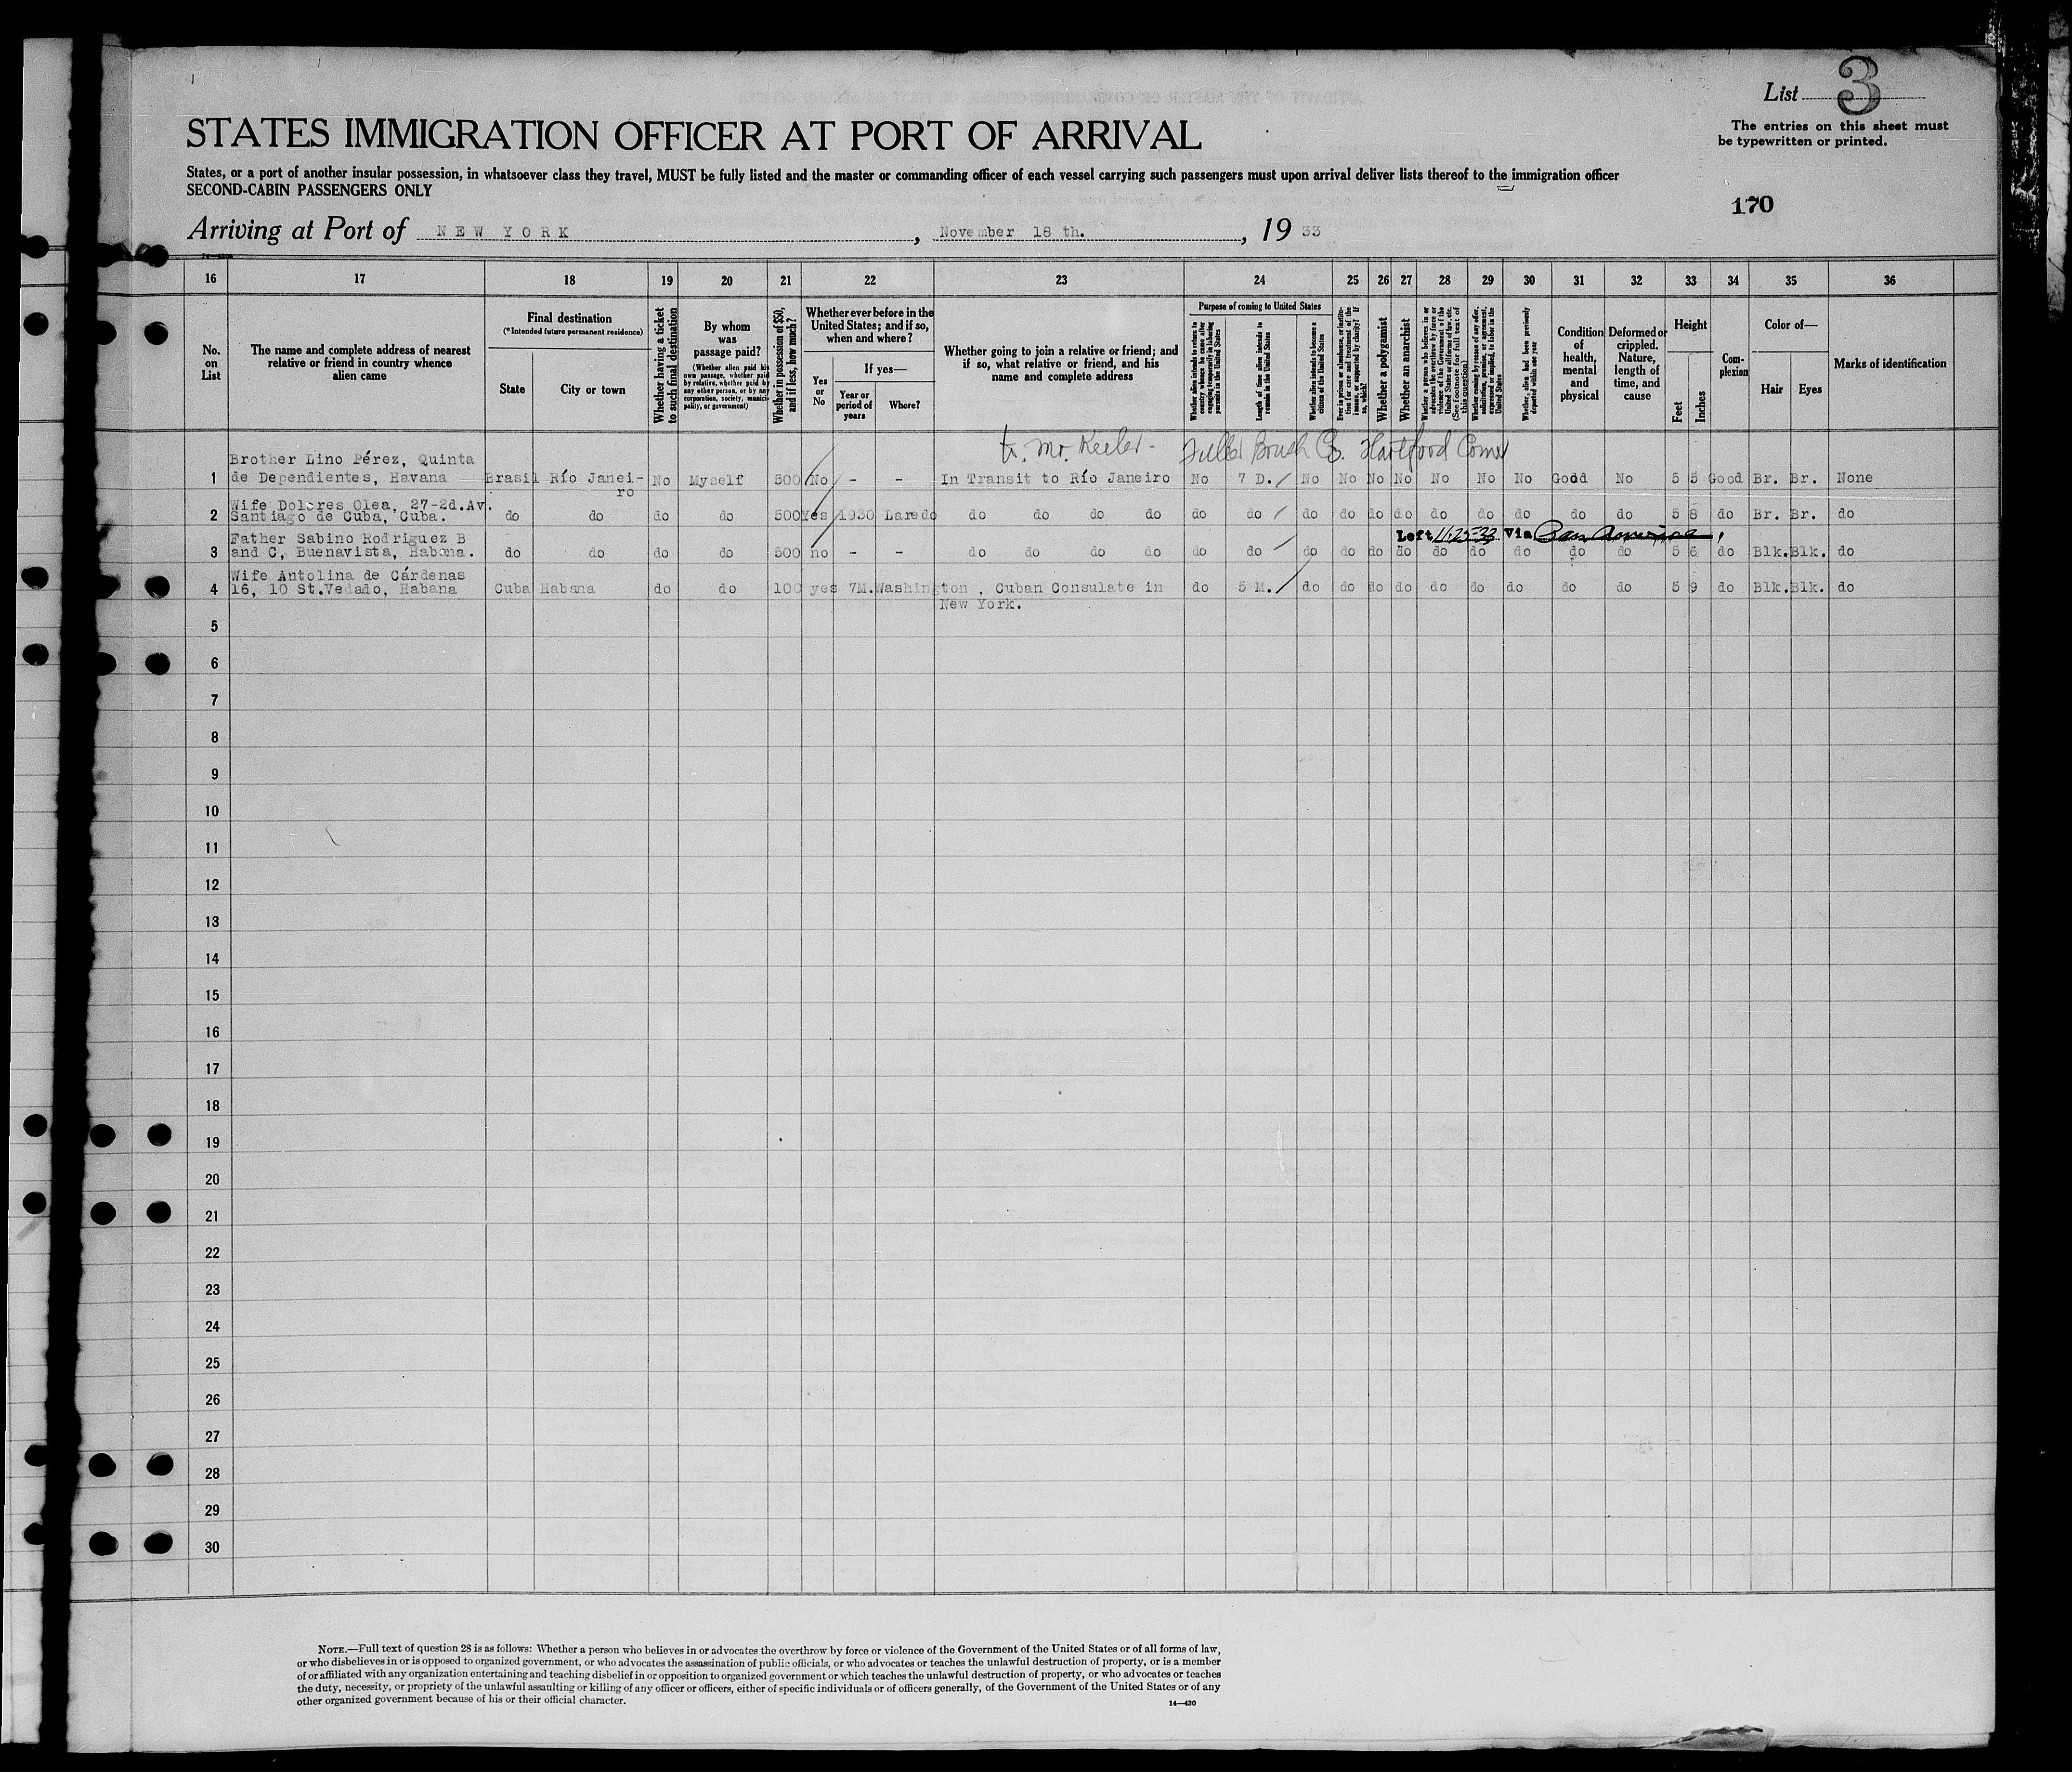 List 3
The entries on this sheet must
be typewritten or printed.
STATES IMMIGRATION OFFICER AT PORT OF ARRIVAL
States, or a port of another insular possession, in whatsoever class they travel, MUST be fully listed and the master or commanding officer of each vessel carrying such passengers must upon arrival deliver lists thereof to the immigration officer
SECOND-CABIN PASSENGERS ONLY
170
Arriving at Port of NEW YORK, November 18 th., 19 33
16 17 18 19 20 21 22 23 24 25 26 27 28 29 30 31 32 33 34 35 36
No. on List
The name and complete address of nearest relative or friend in country whence alien came
Final destination
(*Intended future permanent residence)
State
City or town
Whether having a ticket to such final destination
By whom was passage paid?
(Whether alien paid his own passage, whether paid by relative, whether paid by any other person, or by any corporation, society, municipality, or government)
Whether in possession of $50, and if less, how much?
Whether ever before in the United States; and if so, when and where?
Yes or No
If yes—
Year or period of years
Where?
Whether going to join a relative or friend; and if so, what relative or friend, and his name and complete address
Purpose of coming to United States
Whether alien intends to return to country whence he came after engaging temporarily in laboring pursuits in the United States
Length of time alien intends to remain in the United States
Whether alien intends to become a citizen of the United States
Ever in prison or almshouse, or institution for care and treatment of the insane, or supported by charity? If so, which?
Whether a polygamist
Whether an anarchist
Whether a person who believes in or advocates the overthrow by force or violence of the Government of the United States or all forms of law, etc. (See footnote for full text of this question.)
Whether coming by reason of any offer, solicitation, promise, or agreement, expressed or implied, to labor in the United States
Whether alien had been previously deported within one year
Condition of health, mental and physical
Deformed or crippled. Nature, length of time, and cause
Height
Feet
Inches
Complexion
Color of—
Hair
Eyes
Marks of identification
to Mr. Keeler - Fuller Brush Co. Hartford Conn
Brother Lino Pérez, Quinta
1 de Dependientes, Havana Brasil Río Janei- No Myself 500 No - - In Transit to Río Janeiro No 7 D. No No No No No No No Good No 5 5 Good Br. Br. None
ro
Wife Dolores Olea, 27-2d.Av.
2 Santiago de Cuba, Cuba. do do do do 500 Yes 1930 Laredo do do do do do do do do do do do do do do do 5 8 do Br. Br. do
Left 11-25-33 Via Pan America
Father Sabino Rodriguez B
3 and C, Buenavista, Habana. do do do do 500 no - - do do do do do do do do do do do do do do do 5 6 do Blk. Blk. do
Wife Antolina de Cárdenas
4 16, 10 St.Vedado, Habana Cuba Habana do do 100 yes 7M. Washington , Cuban Consulate in do 5 M. do do do do do do do do do 5 9 do Blk. Blk. do
New York.
5
6
7
8
9
10
11
12
13
14
15
16
17
18
19
20
21
22
23
24
25
26
27
28
29
30
NOTE.—Full text of question 28 is as follows: Whether a person who believes in or advocates the overthrow by force or violence of the Government of the United States or of all forms of law,
or who disbelieves in or is opposed to organized government, or who advocates the assassination of public officials, or who advocates or teaches the unlawful destruction of property, or is a member
of or affiliated with any organization entertaining and teaching disbelief in or opposition to organized government or which teaches the unlawful destruction of property, or who advocates or teaches
the duty, necessity, or propriety of the unlawful assaulting or killing of any officer or officers, either of specific individuals or of officers generally, of the Government of the United States or of any
other organized government because of his or their official character.
14—430